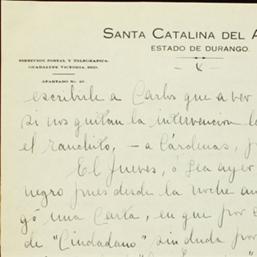 SANTA CATALINA DEL A
ESTADO DE DURANGO.
DIRECCION POSTAL Y TELEGRAFICA.
GUADALUPE VICTORIA, DGO.
APARTADO N.
escribile a Carlos que a ver
si nos quitan la intervencion
el ranchito, — a Cárdenas,
El Jueves, ó sea ayer
negro pues desde la noche an
gó una Carta, en que por
de "Ciudadano" sin duda por